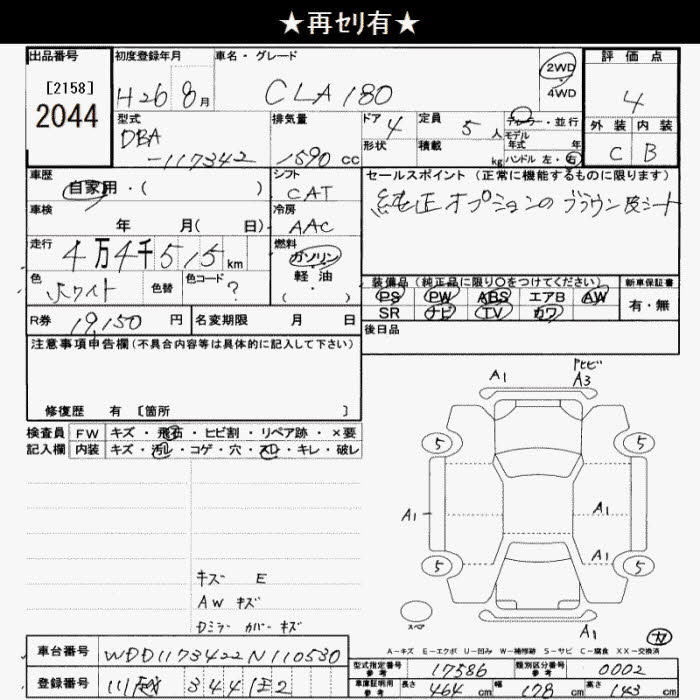 ★再ｾﾘ有★
出品番号
[2158]
2044
初度登録年月
H26 8月
車名・グレード
CLA 180
2WD
・
4WD
評価点
4
外装 内装
C B
型式
DBA
-117342
排気量
1590 cc
ドア 4
形状
定員 5 人
積載 kg
ディーラー・並行
モデル
年式 年
ハンドル 左・右
車歴
自家用・( )
シフト
CAT
車検
年 月( 日)
冷房
AAC
走行
4万4千515km
燃料
ガソリン
軽・油
( )
色
ホワイト
色替
色コード
?
R券 19,150 円
名変期限 月 日
セールスポイント (正常に機能するものに限ります)
純正オプションの ブラウン皮シート
装備品 (純正品に限り○をつけてください)
PS PW ABS エアB AW
SR ナビ TV カワ
新車保証書
有・無
後日品
注意事項申告欄(不具合内容等は具体的に記入して下さい)
修復歴 有 [箇所 ]
検査員
記入欄
FW キズ・飛石・ヒビ割・リペア跡・×要
内装 キズ・汚レ・コゲ・穴・スレ・キレ・破レ
A1
アヒビ
A3
5
5
A1
A1
A1
5
5
スペア
A1
キズ E
AW キズ
Dミラー カバー キズ
A-キズ E-エクボ U-凹み W-補修跡 S-サビ C-腐食 XX-交換済
車台番号 WDD1173422N110530
登録番号 川越 344
型式指定番号
参考
17586
類別区分番号
参考
0002
車庫証明用
参考
長さ 464 cm 幅 178 cm 高さ 143 cm